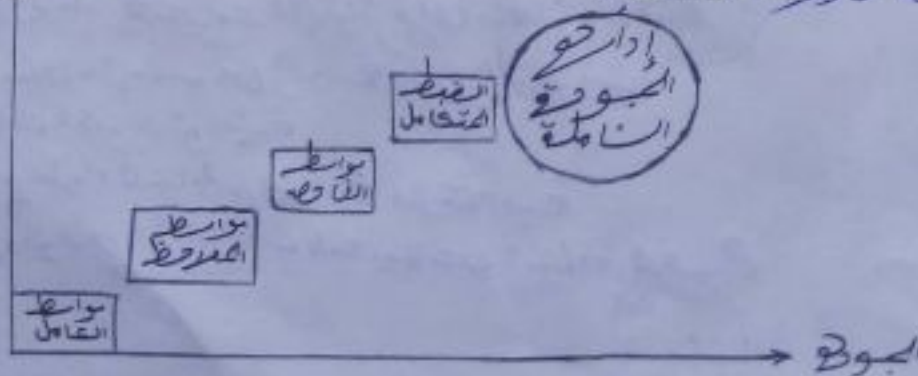 إدارة
الجودة
الشاملة
الضبط
المتكامل
بواسطة
الفاحص
بواسطة
الملاحظ
بواسطة
العامل
الجودة